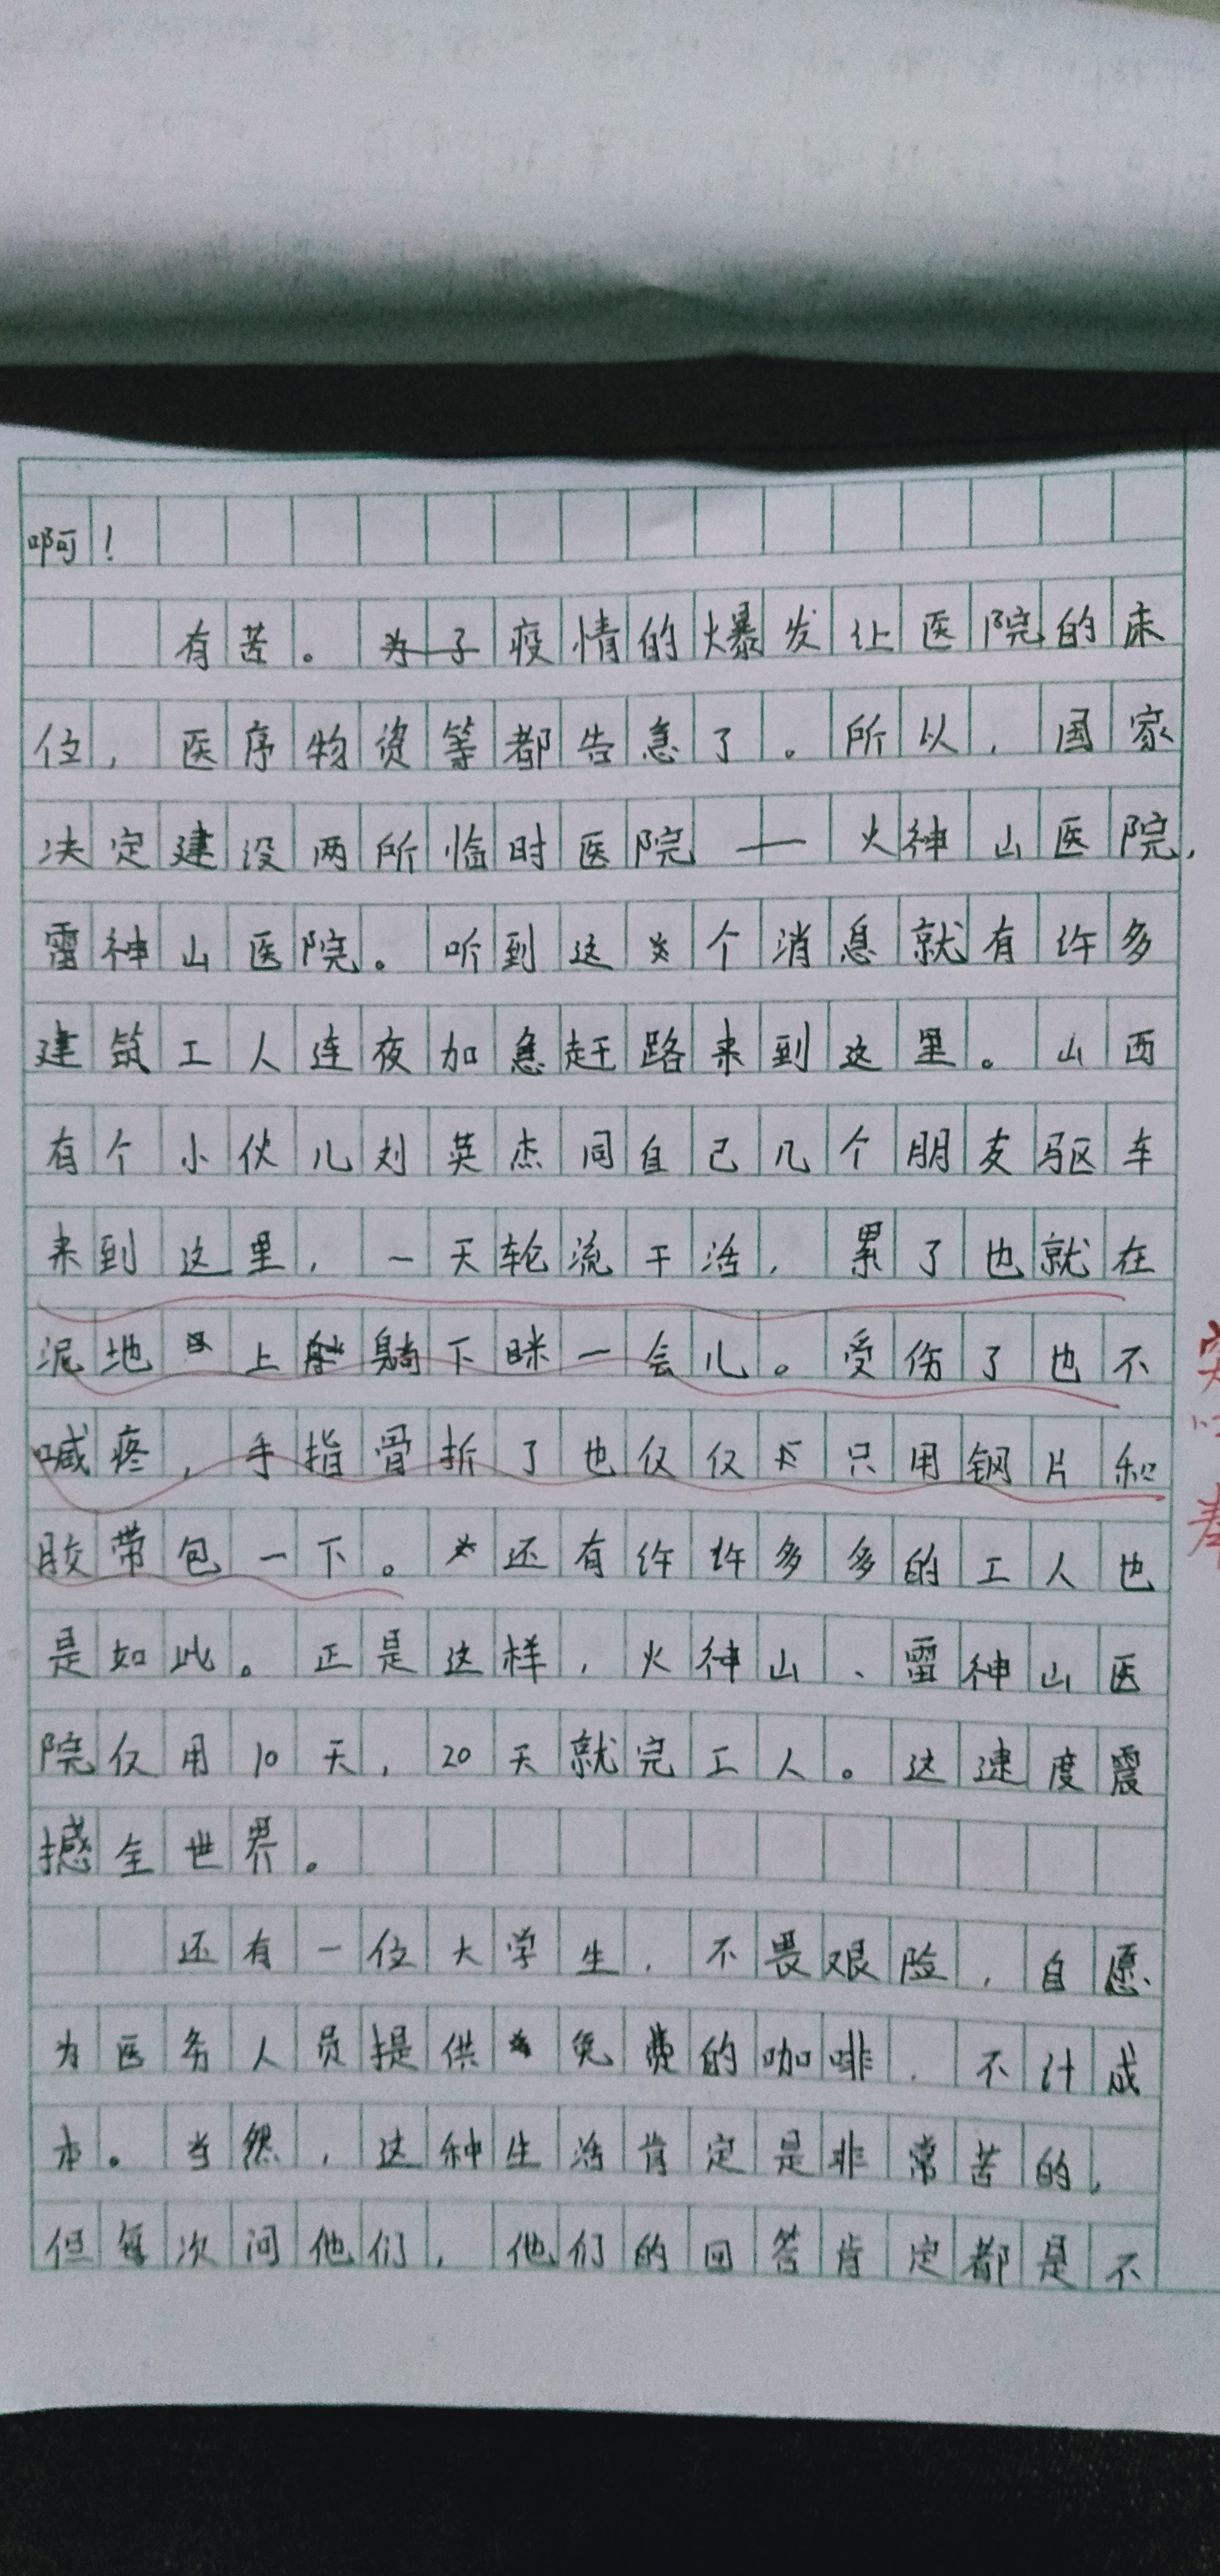 啊！
有苦。疫情的爆发让医院的床
位，医疗物资等都告急了。所以，国家
决定建设两所临时医院——火神山医院，
雷神山医院。听到这个消息就有许多
建筑工人连夜加急赶路来到这里。山西
有个小伙儿刘英杰同自己几个朋友驱车
来到这里，一天轮流干活，累了也就在
泥地上躺下眯一会儿。受伤了也不
喊疼，手指骨折了也仅仅只用钢片和
胶带包一下。还有许许多多的工人也
是如此。正是这样，火神山、雷神山医
院仅用10天，20天就完工人。这速度震
撼全世界。
还有一位大学生，不畏艰险，自愿
为医务人员提供免费的咖啡，不计成
本。当然，这种生活肯定是非常苦的，
但每次问他们，他们的回答肯定都是不